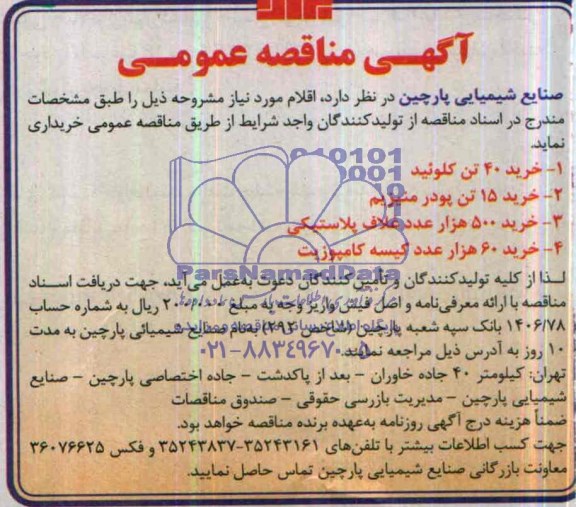 آگهـی مناقصه عمومـی
صنایع شیمیایی پارچین در نظر دارد، اقلام مورد نیاز مشروحه ذیل را طبق مشخصات
مندرج در اسناد مناقصه از تولیدکنندگان واجد شرایط از طریق مناقصه عمومی خریداری
نماید.
۱- خرید ۴۰ تن کلوئید
۲- خرید ۱۵ تن پودر منیزیم
۳- خرید ۵۰۰ هزار عدد غلاف پلاستیکی
۴- خرید ۶۰ هزار عدد کیسه کامپوزیت
ParsNamadData
لـذا از کلیه تولیدکنندگان و تأمین کنندگان دعوت به‌عمل می‌آید، جهت دریافت اسـناد
مناقصه با ارائه معرفی‌نامه و اصل فیش واریز وجه به مبلغ ریال به شماره حساب
۱۴۰۶/۷۸ بانک سپه شعبه پارچین بنام صنایع شیمیائی پارچین به مدت
۱۰ روز به آدرس ذیل مراجعه نمایند.
۰۲۱-۸۸۳۴۹۶۷۰-۵
تهران: کیلومتر ۴۰ جاده خاوران - بعد از پاکدشت - جاده اختصاصی پارچین - صنایع
شیمیایی پارچین - مدیریت بازرسی حقوقی - صندوق مناقصات
ضمناً هزینه درج آگهی روزنامه به‌عهده برنده مناقصه خواهد بود.
جهت کسب اطلاعات بیشتر با تلفن‌های ۳۵۲۴۳۱۶۱-۳۵۲۴۳۸۳۷ و فکس ۳۶۰۷۶۶۲۵
معاونت بازرگانی صنایع شیمیایی پارچین تماس حاصل نمایید.